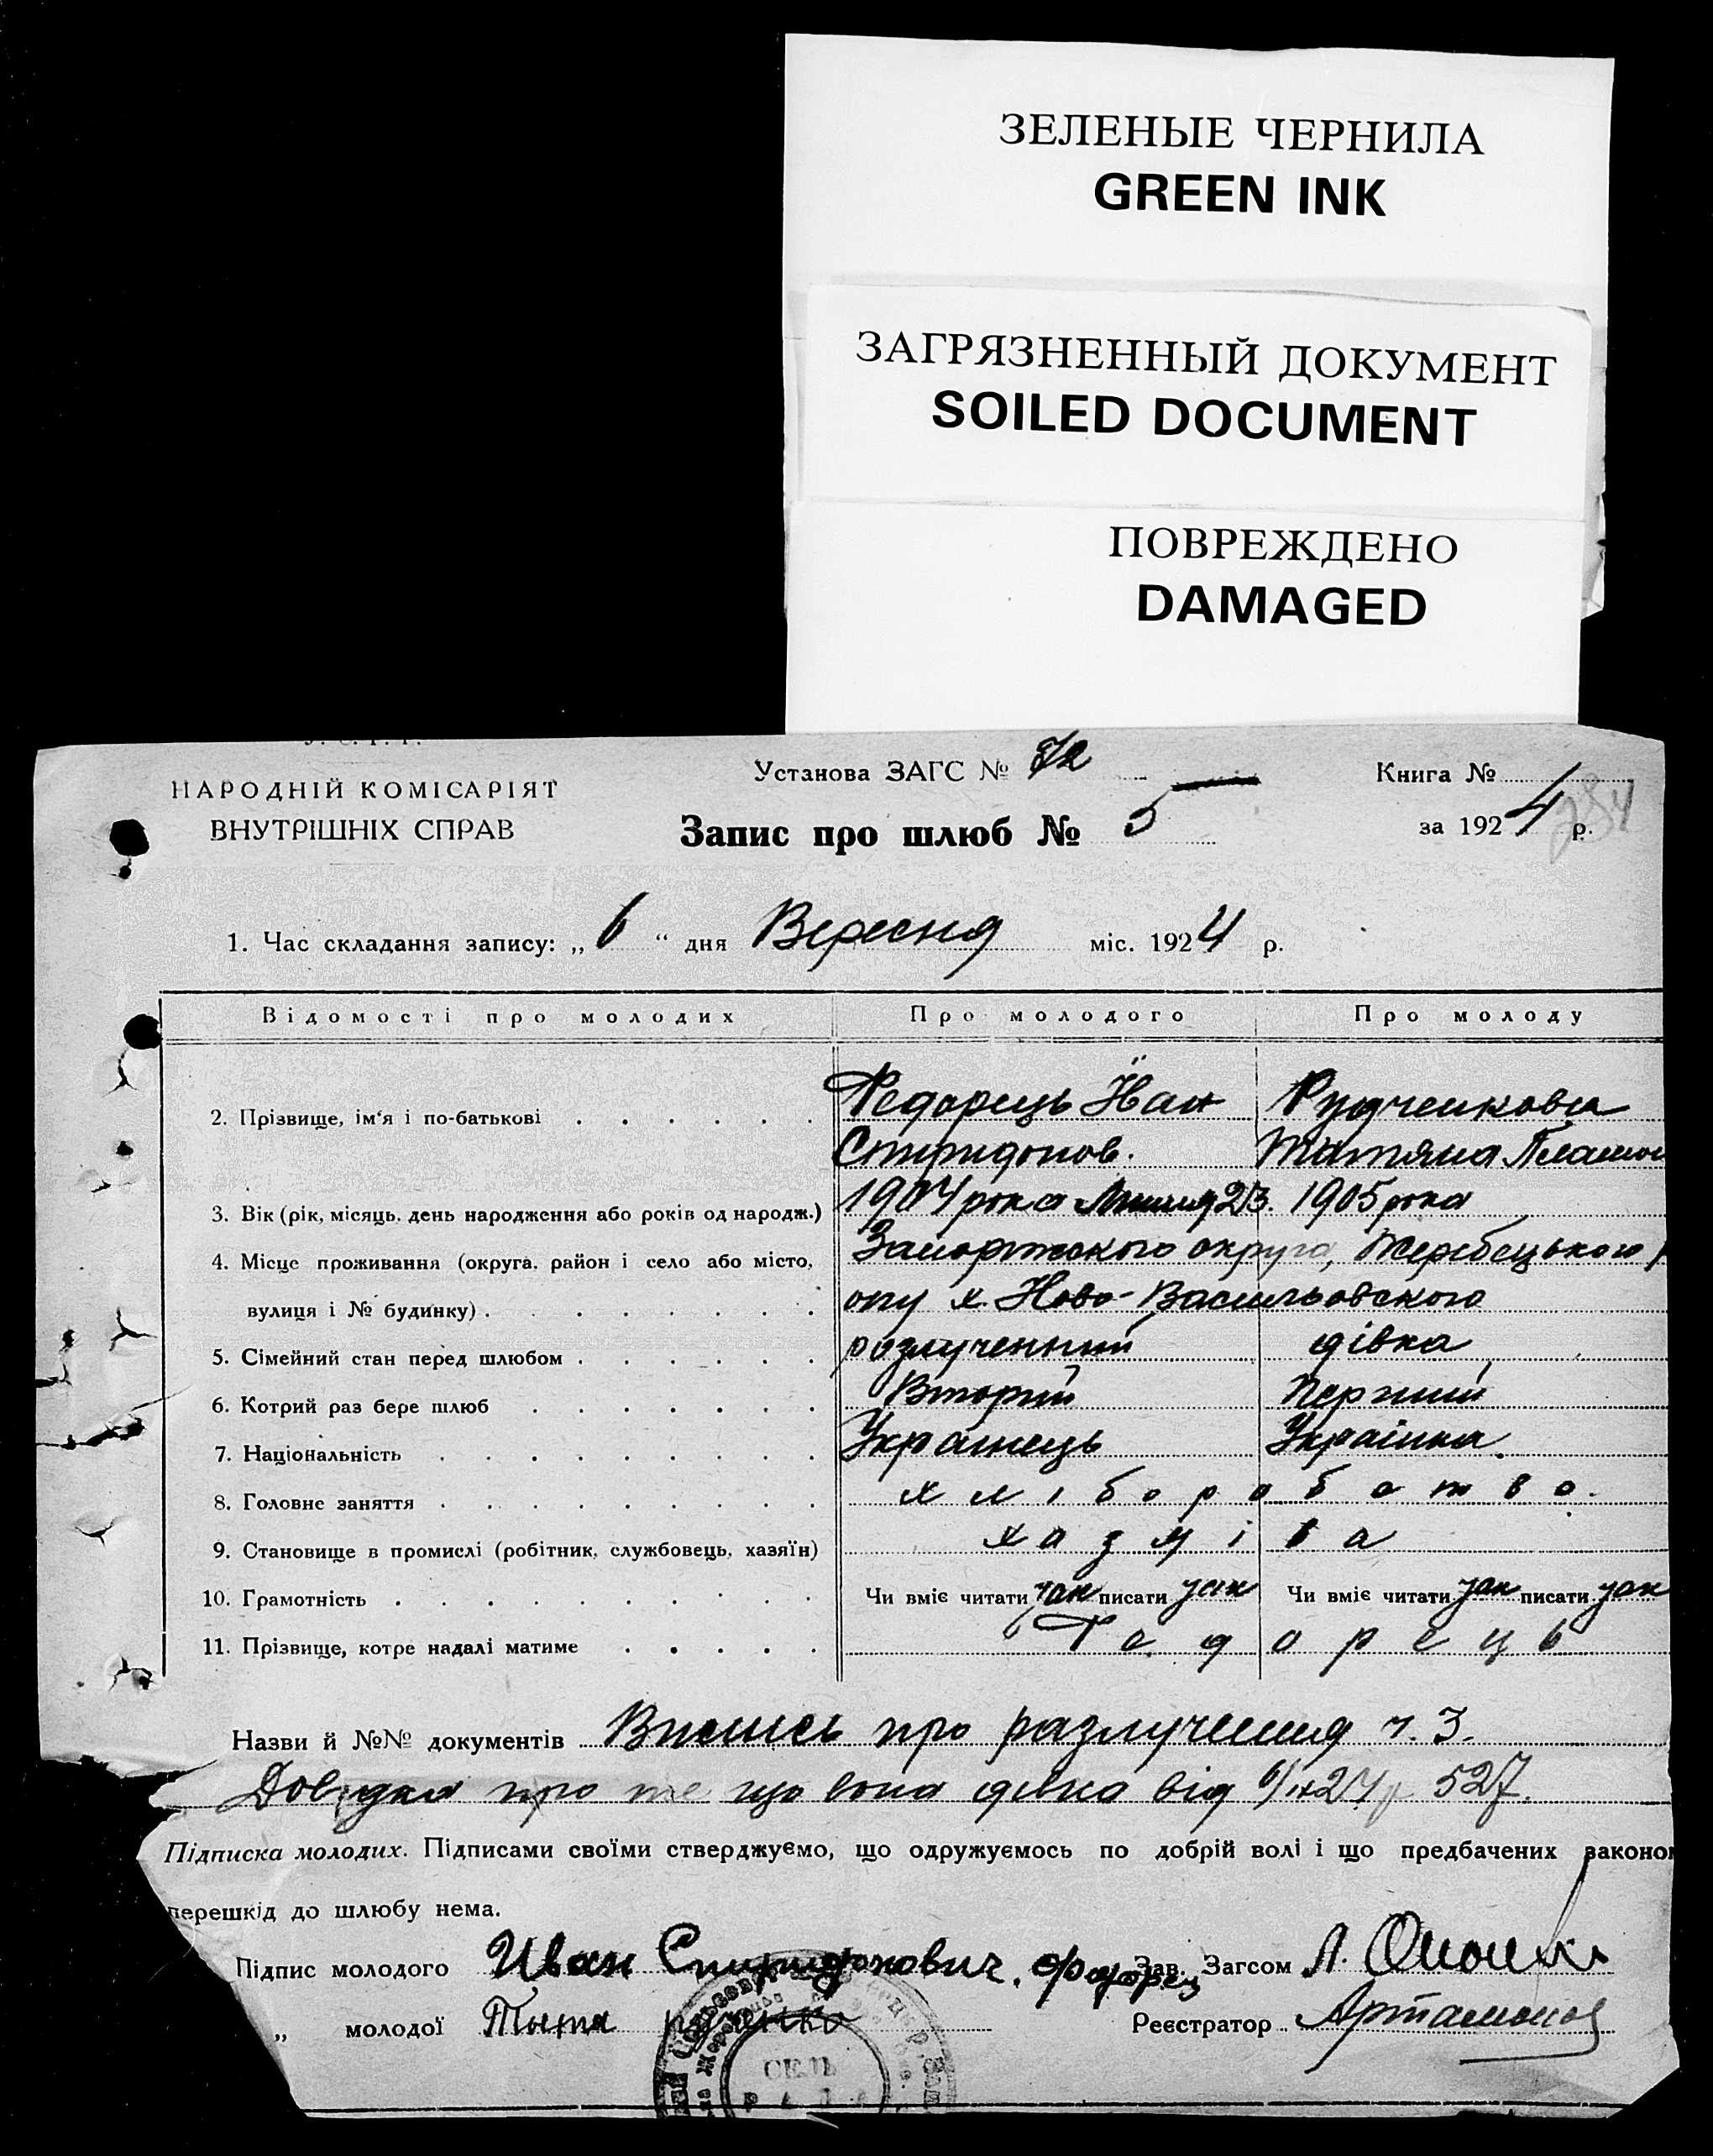 ЗЕЛЕНЫЕ ЧЕРНИЛА
GREEN INK
ЗАГРЯЗНЕННЫЙ ДОКУМЕНТ
SOILED DOCUMENT
ПОВРЕЖДЕНО
DAMAGED
НАРОДНІЙ КОМІСАРІЯТ
ВНУТРІШНІХ СПРАВ
Установа ЗАГС № 72
Запис про шлюб № 5
Книга №
за 1924 р.
1. Час складання запису: „ 6 “ дня Вересня міс. 1924 р.
Відомості про молодих Про молодого Про молоду
2. Прізвище, ім'я і по-батькові Федорець Йван Рудченкова
Спиридонов. Татяна Платон
3. Вік (рік, місяць, день народження або років од народж.) 1904 рока 23. 1905 рока
4. Місце проживання (округа, район і село або місто, Запоріжського округа, Жеребецького
вулиця і № будинку) х. Ново-Васильовського
5. Сімейний стан перед шлюбом розлученний дівка
6. Котрий раз бере шлюб Вторий Перший
7. Національність Українець Українка
8. Головне заняття хліборобство.
9. Становище в промислі (робітник, службовець, хазяїн)
10. Грамотність Чи вміє читати так писати так Чи вміє читати так писати так
11. Прізвище, котре надалі матиме Федорець
Назви й №№ документів Впись про разлучення ч. 3.
Довідка про те що вона дівка від 527.
Підписка молодих. Підписами своїми стверджуємо, що одружуємось по добрій волі і що предбачених законом
перешкід до шлюбу нема.
Підпис молодого Иван Спиридонович Федорец Зав. Загсом Л.
„ молодої Реєстратор Артамонов
СЕЛЬ